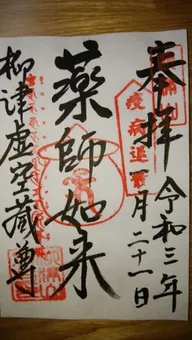 奉拝
令和三年
一月二十一日
疫病退散
薬師如来
柳津虚空蔵尊